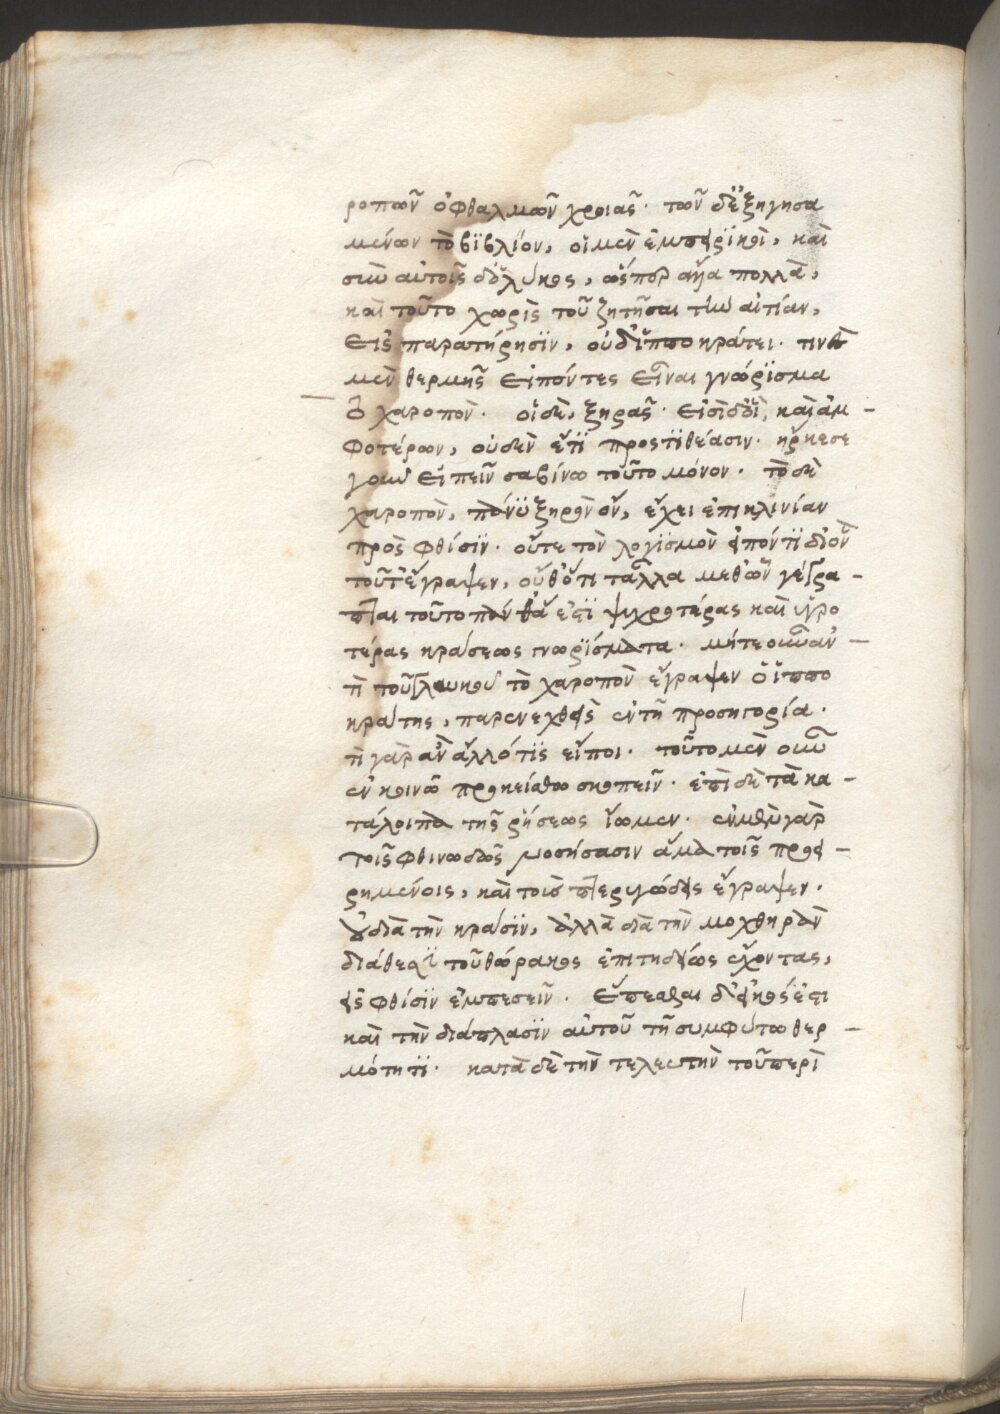 ροπῶν ὀφθαλμῶν χροιᾶς· τῶν δ' ἐξηγησα
μένων τὸ βϊβλίον, οἱ μὲν ἐμπειρϊκοὶ, καὶ
σὺν αὐτοῖς ὁ λύκος, ὥσπερ ἄλλα πολλὰ,
καὶ τοῦτο χωρὶς τοῦ ζητῆσαι τὴν αἰτίαν,
εἰς παρατήρησϊν, οὐδ' ϊπποκράτει· τινὲς
μὲν θερμῆς εἰπόντες εἶναι γνώρϊσμα
τὸ χαροπὸν· οἱ δὲ, ξηρᾶς· εἰσὶ δ' οἳ, καὶ ἀμ-
φοτέρων, οὐδὲν ἔτϊ προςτϊθέασιν· ἤρκεσε
γοῦν εἰπεῖν σαβίνω τοῦτο μόνον· τὸ δὲ
χαροπὸν, πάνϋ ξηρὸν ὂν, ἔχει ἐπικλινίαν
πρὸς φθίσϊν· οὔτε τὸν λογϊσμὸν εἰπόντϊ δι' ὃν
τοῦτ' ἔγραψεν, οὔθ' ὅτι τἄλλα μεθ' ὧν γέγρα-
πται τοῦτο πάνθ' ἅ ἐςϊ ψυχροτέρας καὶ ὑγρο
τέρας κράσεως γνωρϊσματα· μήτε οὖν ἀν-
τὶ τοῦ γλαυκοῦ τὸ χαροπὸν ἔγραψεν ὁ ϊππο
κράτης, παρενεχθεὶς ἐν τῆ προσηγορία·
τί γὰρ ἂν ἄλλό τϊς εἴποι· τοῦτο μὲν οὖν
ἐν κοινῶ προκείσθω σκοπεῖν· ἐπὶ δὲ τὰ κα-
τάλοιπα τῆς ῥήσεως ἴωμεν· εὐμθὺ γὰρ
τοῖς φθινωδῶς νοσήσασιν ἅμα τοῖς προει-
ρημένοις, καὶ τοὺς πτερυγώδεις ἔγραψεν·
οὐ διὰ τὴν κράσϊν, ἀλλὰ διὰ τὴν μοχθηρὰν
διάθεσϊ τοῦ θώρακος ἐπιτηδείως ἔχοντας,
εἰς φθίσϊν ἐμπεσεῖν· ἕπεσθαι δ' εἰκός ἐςι
καὶ τὴν διάπλασϊν αὐτοῦ τῆ συμφύτω θερ-
μότητϊ· κατὰ δὲ τὴν τελευτὴν τοῦ περὶ